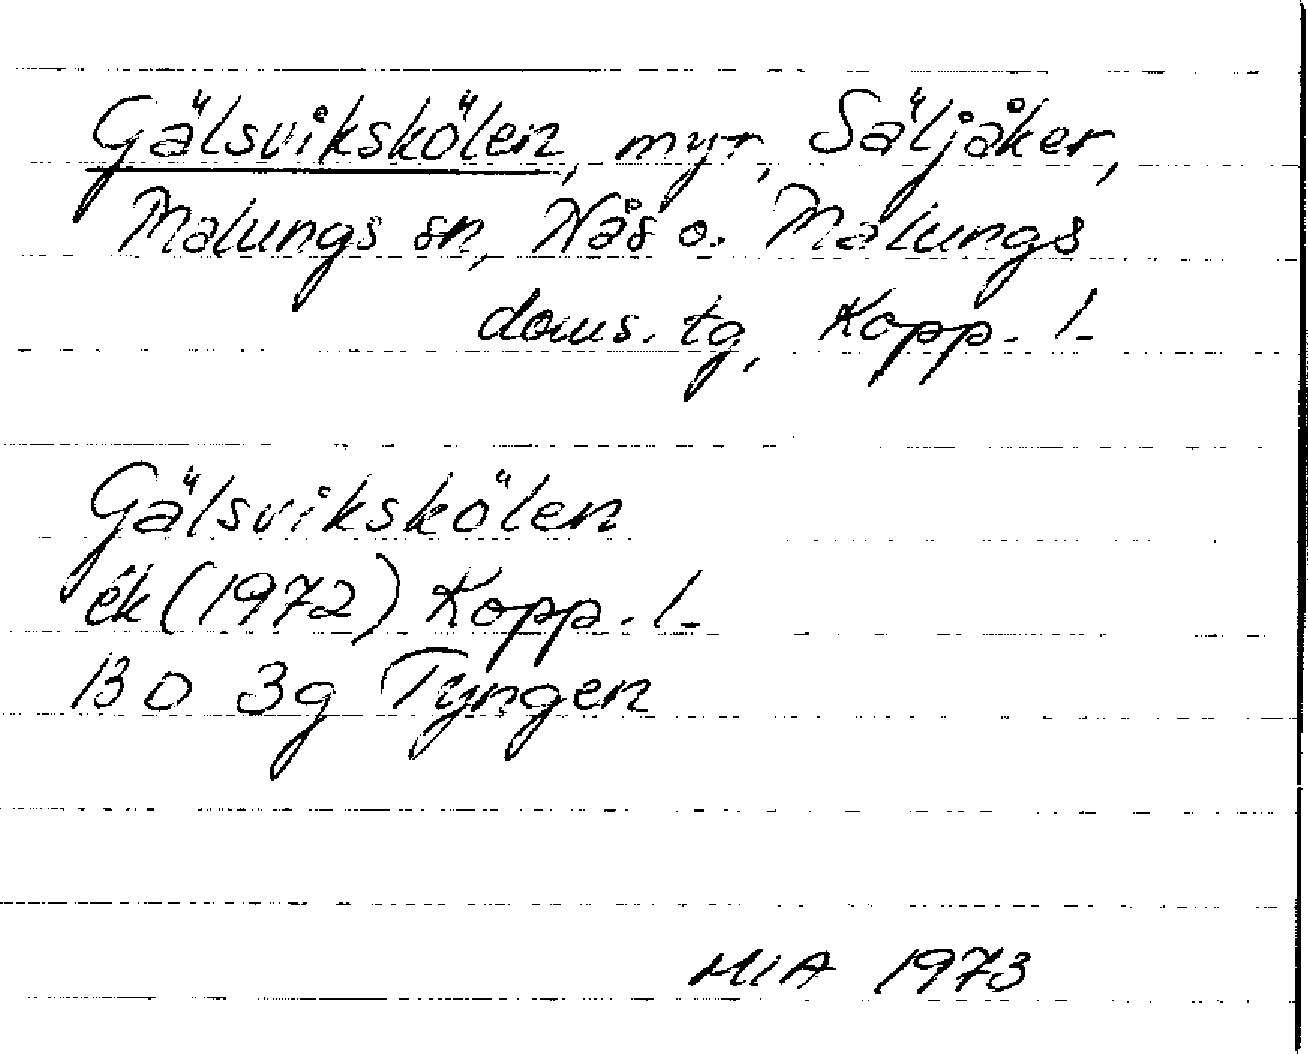 Gälsvikskölen, myr, Säljåker,
Malungs sn, Nås o. Malungs
doms. tg, Kopp. l.
Gälsvikskölen
ek (1972) Kopp. l.
13 D 3g Tyngen
MIA 1973